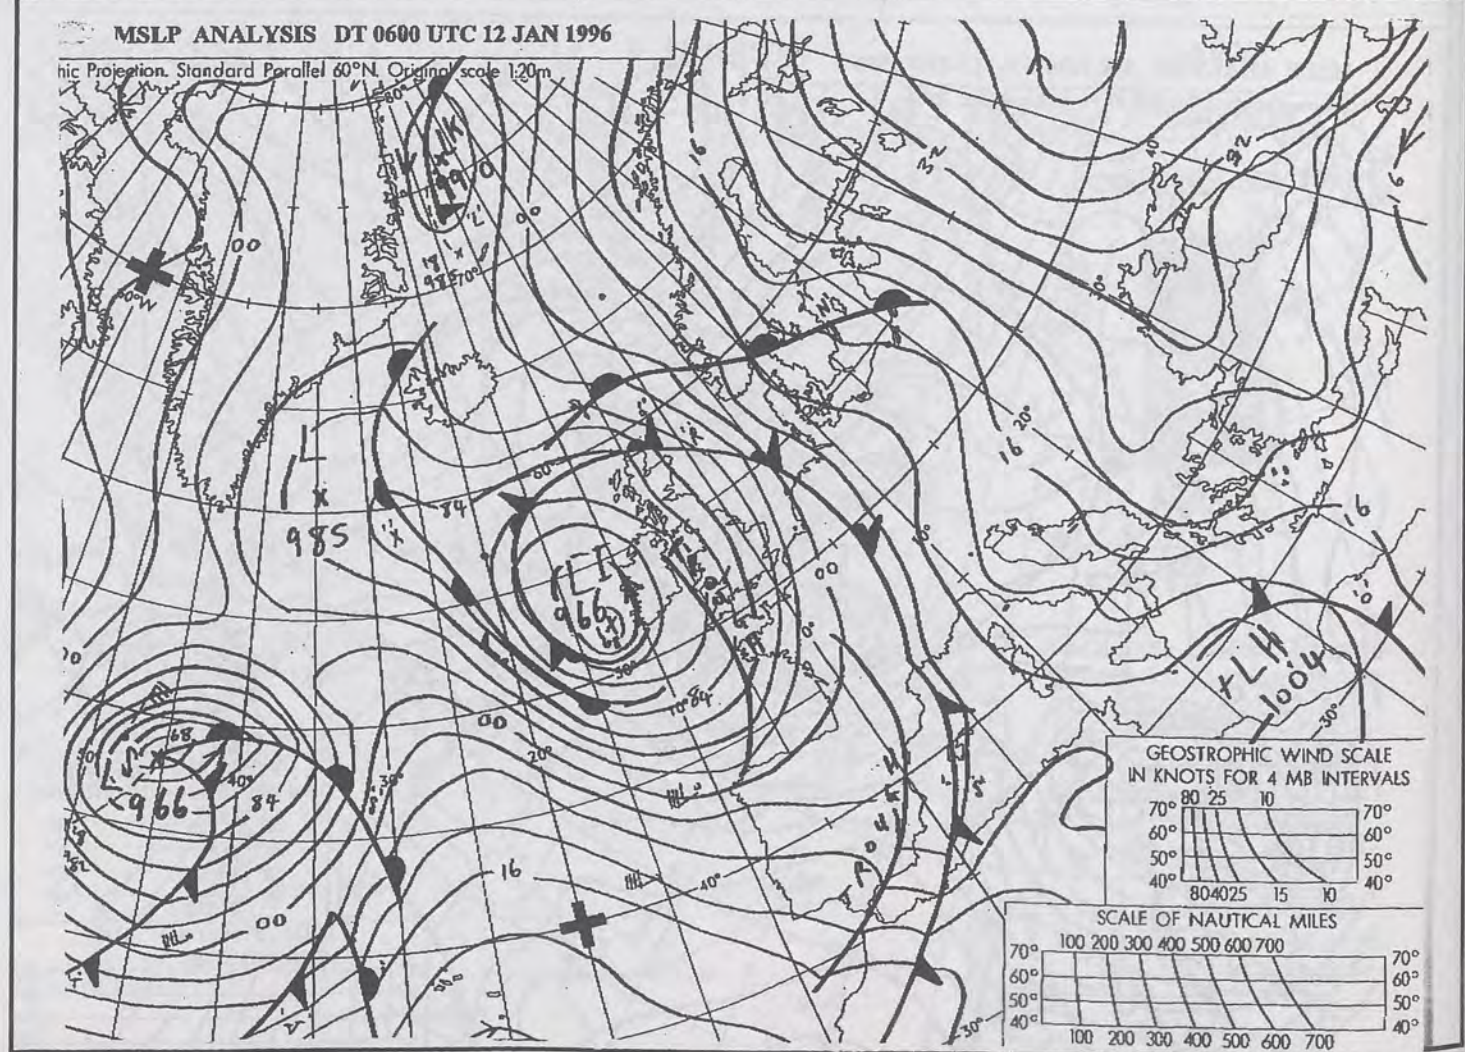 MSLP ANALYSIS DT 0600 UTC 12 JAN 1996
hic Projection. Standard Parallel 60°N. Original scale 1:20m
80°
990
L
985
70°
00
00
16
32
32
40°
16
50°W
L
985
84
60°
R
N
16
20°
16
10°
00
0°
L
966
50°
10°
84
00
20°
30°
68
L
966
40°
84
00
16
40°
TROUGH
+LH
1004
30°
30°
GEOSTROPHIC WIND SCALE
IN KNOTS FOR 4 MB INTERVALS
80 25 10
70° 70°
60° 60°
50° 50°
40° 40°
80 40 25 15 10
SCALE OF NAUTICAL MILES
100 200 300 400 500 600 700
70° 70°
60° 60°
50° 50°
40° 40°
100 200 300 400 500 600 700